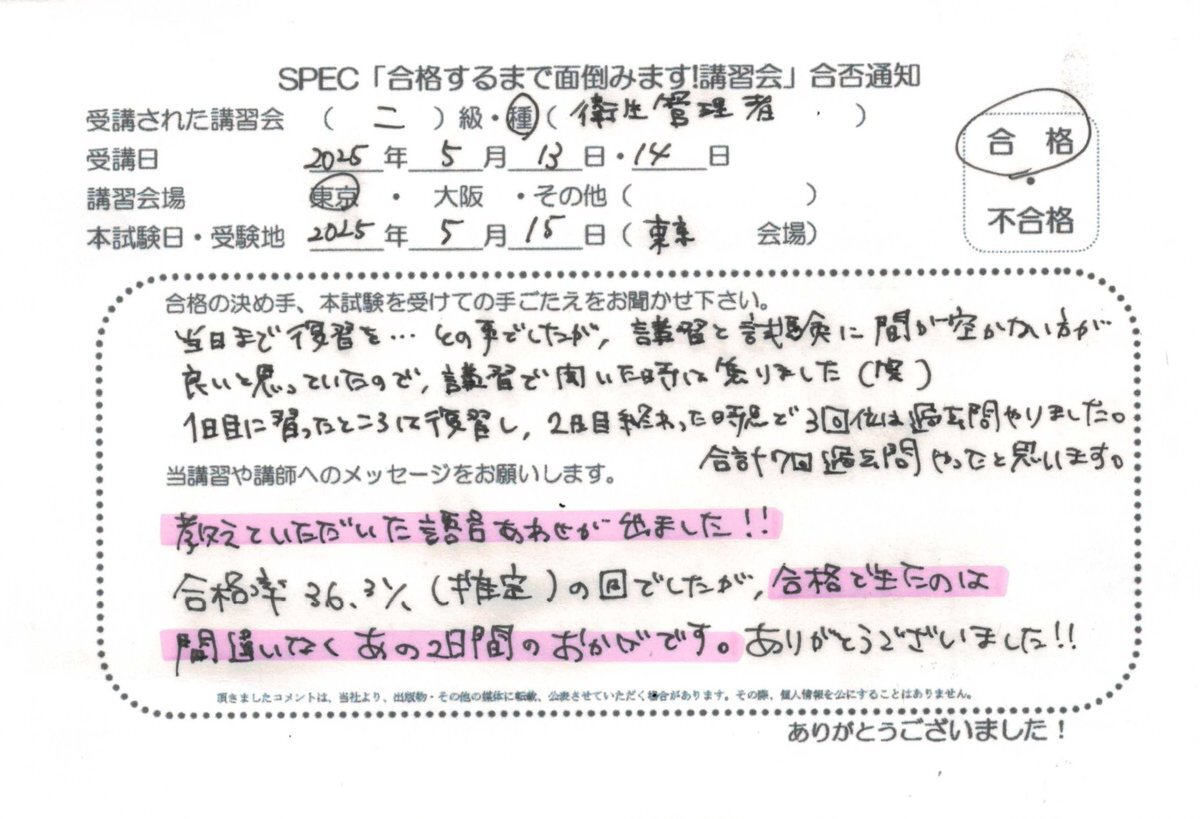 SPEC「合格するまで面倒みます!講習会」合否通知
受講された講習会 ( 二 ) 級・種 ( 衛生管理者 )
受講日 2025年 5月 13日・14日
講習会場 東京 ・ 大阪 ・その他( )
本試験日・受験地 2025年 5月 15日( 東京 会場)
合 格
・
不合格
合格の決め手、本試験を受けての手ごたえをお聞かせ下さい。
当日まで復習を… との事でしたが、講習と試験に間が空かない方が
良いと思っていたので、講習で聞いた時は焦りました(笑)
1日目に習ったところは復習し、2日目終わった時点で3回位は過去問やりました。
合計7回過去問やったと思います。
当講習や講師へのメッセージをお願いします。
教えていただいた語呂あわせが出ました!!
合格率36.3%(推定)の回でしたが、合格できたのは
間違いなくあの2日間のおかげです。ありがとうございました!!
頂きましたコメントは、当社より、出版物・その他の媒体に転載、公表させていただく場合があります。その際、個人情報を公にすることはありません。
ありがとうございました!